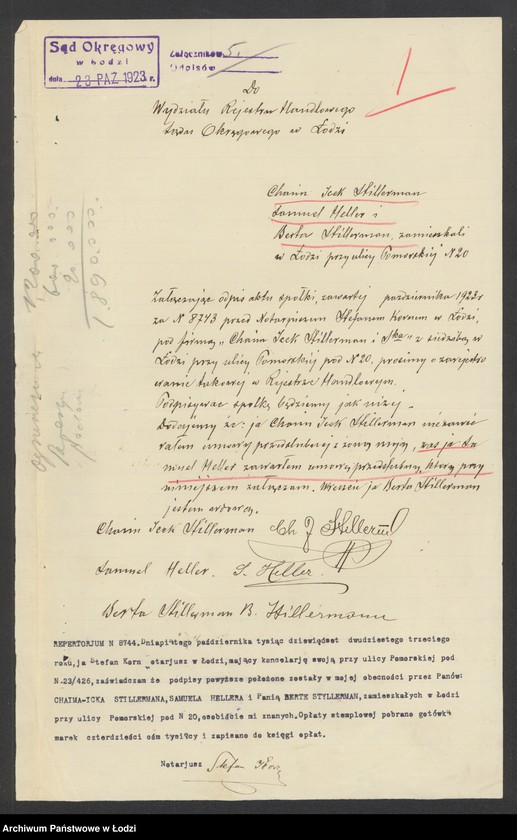 Sąd Okręgowy
w Łodzi
dnia 23 PAZ 1923 r.
Załączników 5.
Odpisów
1
Do
Wydziału Rejestru Handlowego
Sądu Okręgowego w Łodzi
Chaim Icek Stillerman
Samuel Heller i
Berta Stillerman, zamieszkali
w Łodzi przy ulicy Pomorskiej N 20
Załączając odpis aktu spółki, zawartej października 1923 r
za N 8743 przed Notarjuszem Stefanem Kornem w Łodzi,
pod firmą „Chaim Icek Stillerman i S-ka" z siedzibą w
Łodzi przy ulicy Pomorskiej pod N 20, prosimy o zarejestro
wanie takowej w Rejestrze Handlowym.
Podpisywać spółkę będziemy jak niżej.
Dodajemy że: ja Chaim Icek Stillerman nie zawie
rałem umowy przedślubnej z żoną moją, zaś ja Sa
muel Heller zawarłem umowę przedślubną, którą przy
niniejszem załączam. Wreszcie ja Berta Stillerman
jestem wdową.
Chaim Icek Stillerman Ch J Stillerman
Samuel Heller. S. Heller.
Berta Stillerman B. Stillermann
REPERTORJUM N 8744. Dnia piątego października tysiąc dziewięćset dwudziestego trzeciego
roku, ja Stefan Korn otarjusz w Łodzi, mający kancelarję swoją przy ulicy Pomorskiej pod
N 23/426, zaświadczam że podpisy powyższe położone zostały w mojej obecności przez Panów:
CHAIMA-ICKA STILLERMANA, SAMUELA HELLERA i Panią BERTE STYLLERMAN, zamieszkałych w Łodzi
przy ulicy Pomorskiej pod N 20, osobiście mi znanych. Opłaty stemplowej pobrano gotówką
marek czterdzieści ośm tysięcy i zapisano do księgi opłat.
Notarjusz Stefan Korn
Archiwum Państwowe w Łodzi